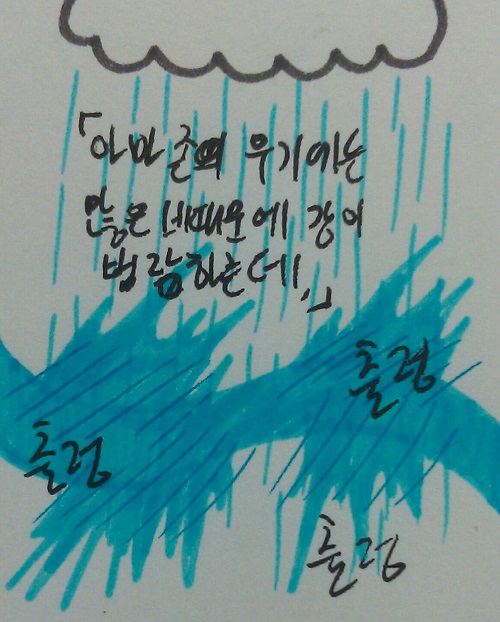 「아마존의 우기에는
많은 비때문에 강이
범람하는데,」
출렁
출렁
출렁